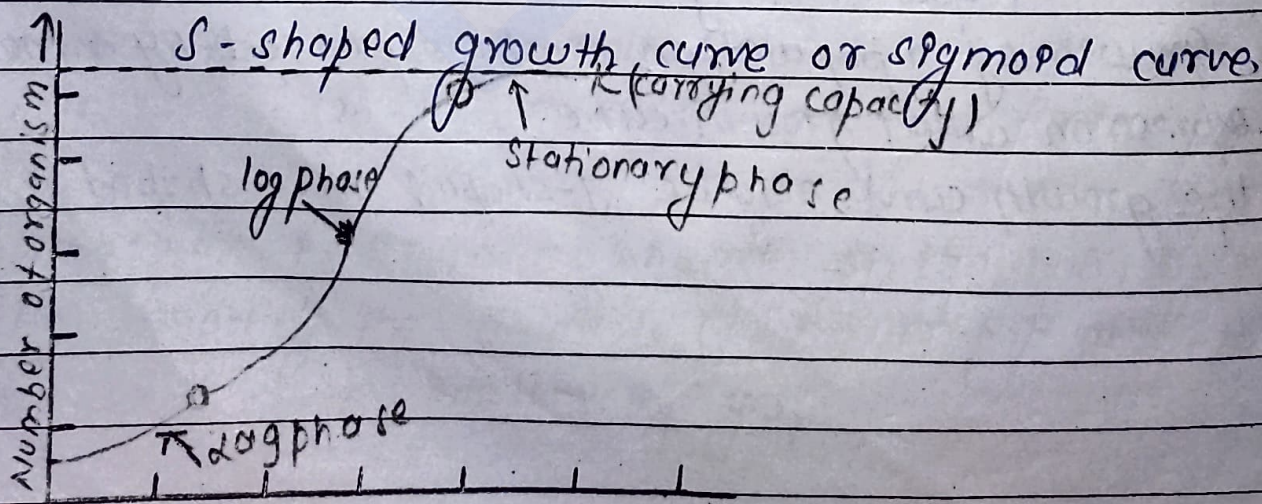 S-shaped growth curve or sigmoid curve
K (carrying capacity)
Stationary phase
log phase
Lag phase
Number of organism